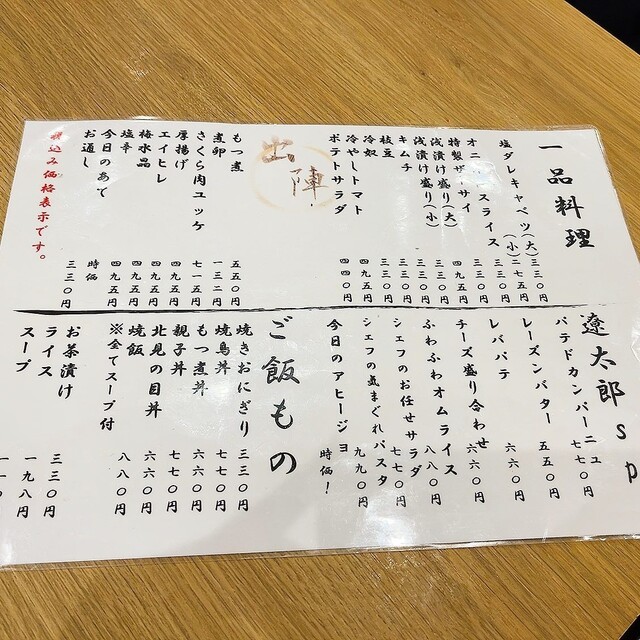 一品料理
塩ダレキャベツ(大) 三三〇円
(小) 二七五円
スライス 三三〇円
特製ザーサイ 四九五円
浅漬け盛り(大) 三三〇円
浅漬け盛り(小) 三三〇円
キムチ 三三〇円
枝豆 三三〇円
冷奴 四九五円
冷やしトマト 四四〇円
ポテトサラダ 四四〇円
出陣
もつ煮 五五〇円
煮卵 一三二円
さくら肉ユッケ 七一五円
厚揚げ 四九五円
エイヒレ 四九五円
梅水晶 四九五円
塩辛 四九五円
今日のあて 時価
お通し 三三〇円
税込み価格表示です。
遼太郎sp
パテドカンパーニュ 七七〇円
レーズンバター 五五〇円
レバパテ 六六〇円
チーズ盛り合わせ 六六〇円
ふわふわオムライス 八八〇円
シェフのお任せサラダ 七七〇円
シェフの気まぐれパスタ 九九〇円
今日のアヒージョ 時価!
ご飯もの
焼きおにぎり 三三〇円
焼鳥丼 七七〇円
もつ煮丼 六六〇円
親子丼 七七〇円
北見の目丼 六六〇円
焼飯 八八〇円
※全てスープ付
お茶漬け 三三〇円
ライス 一九八円
スープ